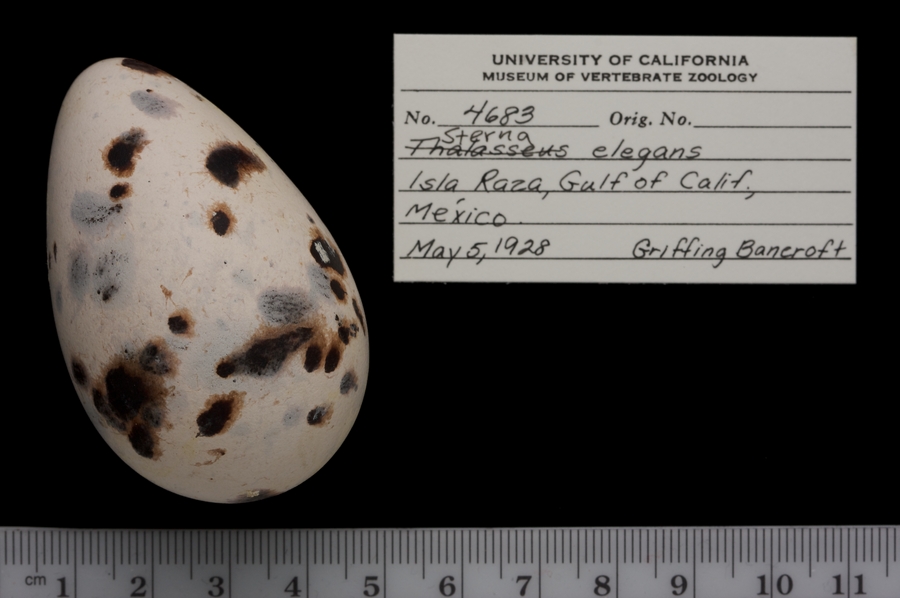 UNIVERSITY OF CALIFORNIA
MUSEUM OF VERTEBRATE ZOOLOGY
No. 4683 Orig. No.
Sterna
Thalasseus elegans
Isla Raza, Gulf of Calif.,
México.
May 5, 1928 Griffing Bancroft
cm 1 2 3 4 5 6 7 8 9 10 11